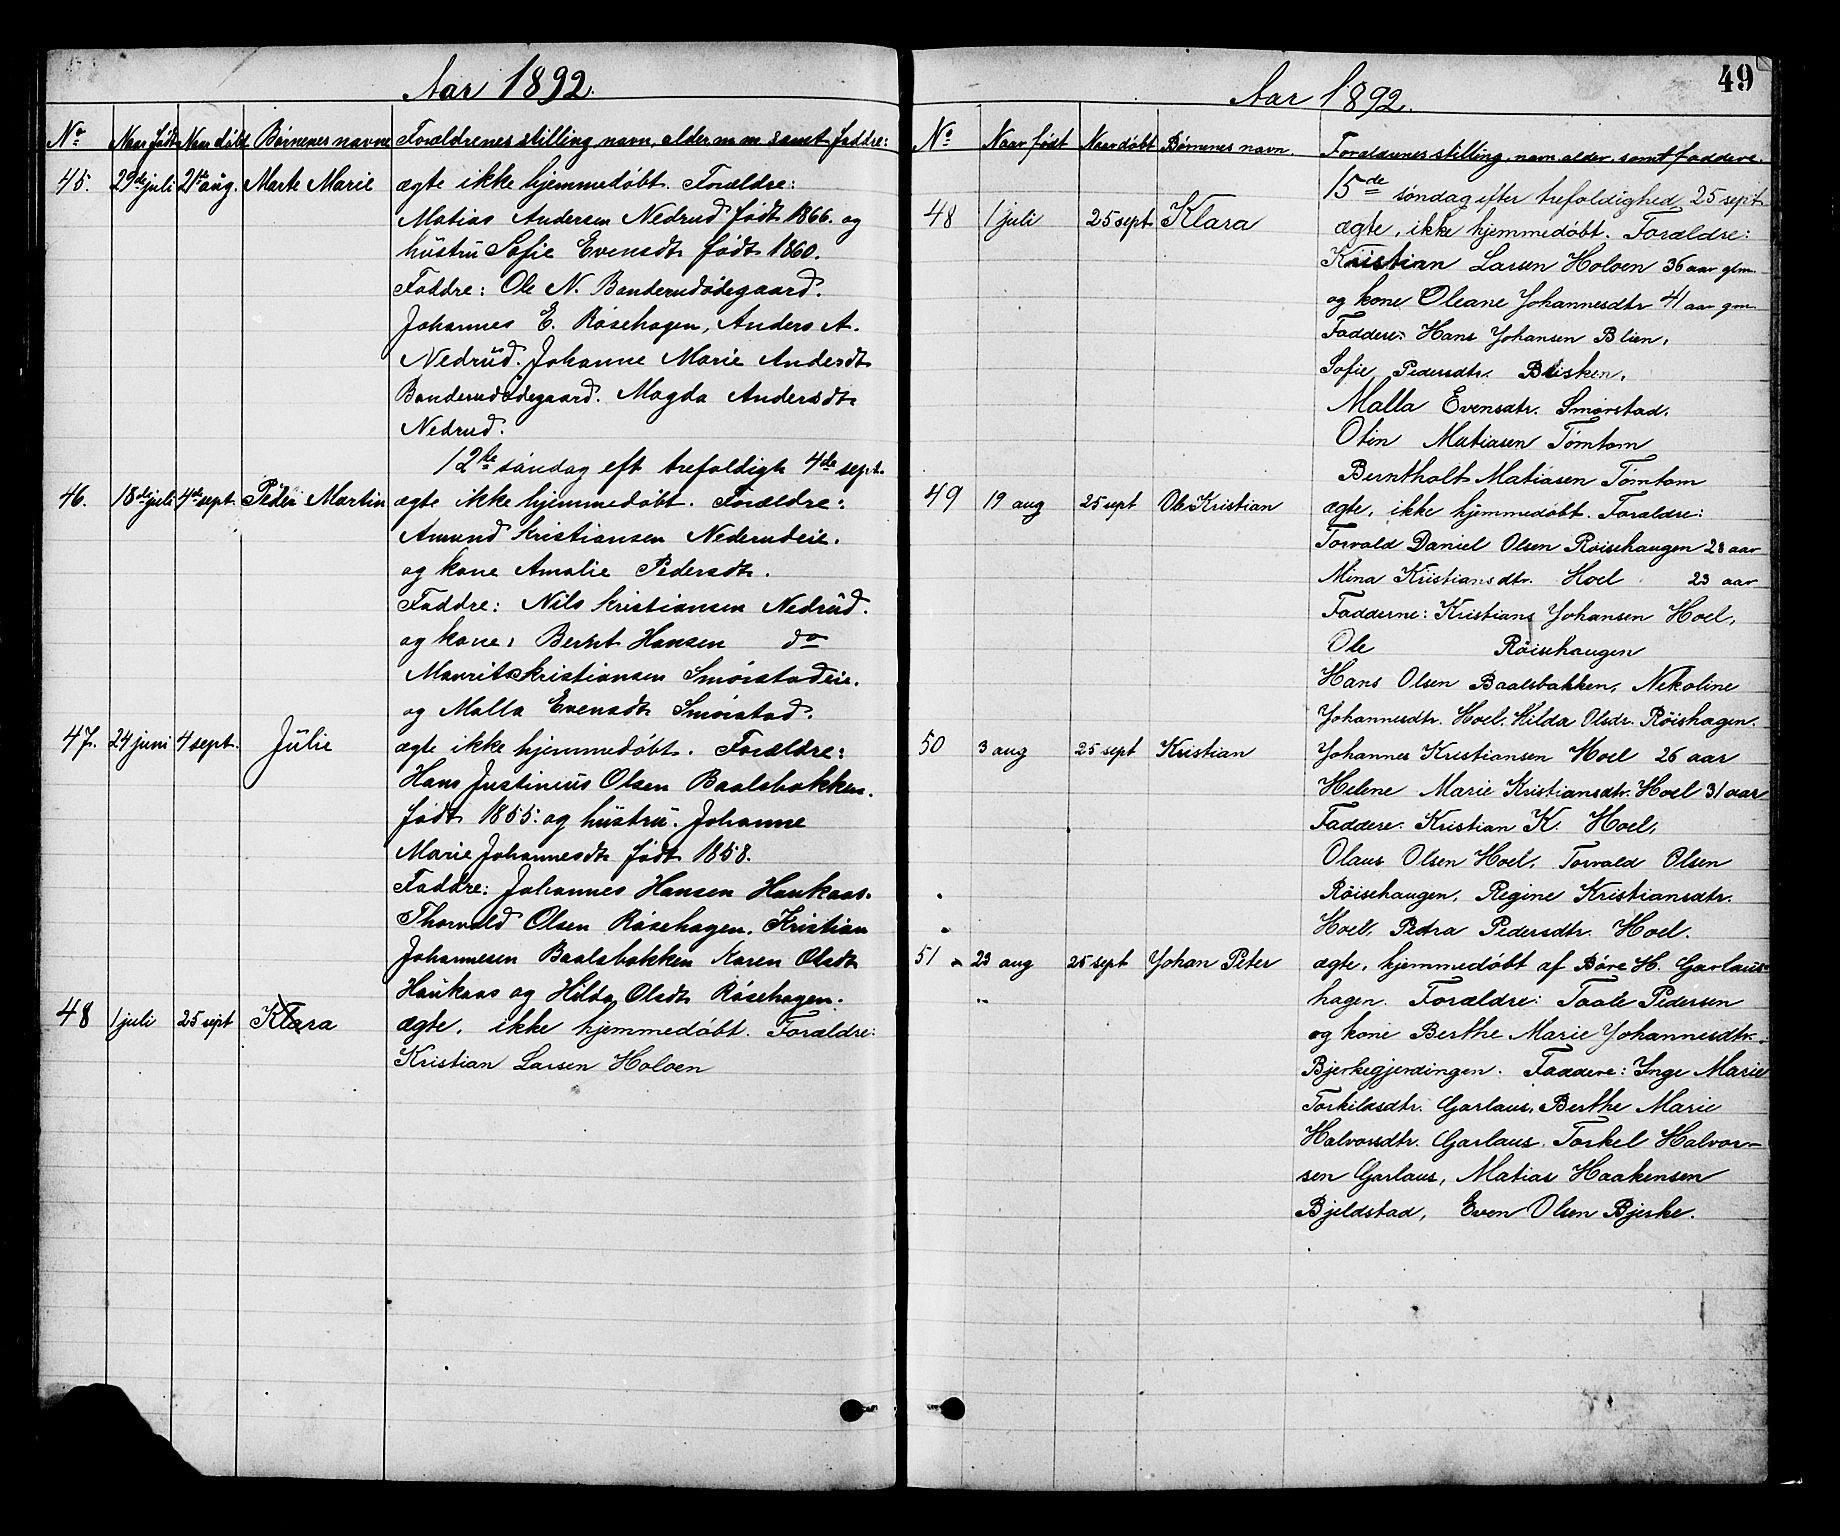 Aar 1892.
No Naar født Naar døbt Børnenes navne Forældrenes stilling navn, alder m m samt faddre:
45. 29de juli 21de aug. Marte Marie ægte ikke hjemmedøbt. Forældre:
Matias Andersen Nedrud født 1866. og
hustru Sofie Evensdt. født 1860.
Faddre: Ole N. Banderudødegaard.
Johannes E. Røsehagen, Anders A.
Nedrud. Johanne Marie Andersdt
Banderudødegaard. Magda Andersdt.
Nedrud.
12te søndag eft trefoldigh 4de sept.
46. 18de juli 4de sept. Peder Martin ægte ikke hjemmedøbt. Forældre:
Amund Kristiansen Nederudeie.
og kone Amalie Pedersdt.
Faddre: Nils Kristiansen Nedrud.
og kone: Bernt Hansen do
Maurits Kristiansen Smørstadeie.
og Malla Evensdt. Smørstad.
47. 24 juni 4 sept. Julie ægte ikke hjemmedøbt. Forældre:
Hans Justinius Olsen Baalsbakken.
født 1855: og hustru. Johanne
Marie Johannesdt. født 1858.
Faddre: Johannes Hansen Haukaas.
Thorvald Olsen Røsehagen. Kristian
Johannesen Baalsbakken Karen Olsdt
Haukaas og Hilda Olsdt. Røsehagen.
48 1 juli 25 sept Klara ægte, ikke hjemmedøbt. Forældre:
Kristian Larsen Holoen
49
Aar 1892.
No Naar født Naar døbt Børnenes navn. Forældrenes stilling, navn, alder, samt faddere.
15de søndag efter trefoldighed 25 sept.
48 1 juli 25 sept Klara ægte, ikke hjemmedøbt. Forældre:
Kristian Larsen Holoen 36 aar glm.
og kone Oleane Johannesdtr 41 aar gm
Faddere: Hans Johansen Blien,
Sofie Pedersdtr. Bisken,
Malla Evensdtr. Smørstad,
Otin Matiasen Tømtom
Berntholt Matiasen Tømtom
49 19 aug 25 sept Ole Kristian ægte, ikke hjemmedøbt. Forældre:
Torvald Daniel Olsen Røisehaugen 28 aar
Mina Kristiansdtr. Hoel 23 aar
Fadderne: Kristians Johansen Hoel,
Ole Røisehaugen
Hans Olsen Baalsbakken, Nikoline
Johannesdtr. Hoel. Hilda Olsdr. Røishagen.
50 3 aug 25 sept Kristian Johannes Kristiansen Hoel 26 aar
Helene Marie Kristiansdtr. Hoel 31 aar
Faddere: Kristian K. Hoel,
Olaus Olsen Hoel, Torvald Olsen
Røisehaugen, Regine Kristiansdtr.
Hoel, Petra Pedersdtr. Hoel.
51 23 aug 25 sept Johan Peter ægte, hjemmedøbt af Børe H. Garlaus-
hagen. Forældre: Taale Pedersen
og kone Berthe Marie Johannesdtr.
Bjerkegjerdingen. Faddere: Inge Marie
Torkilsdtr. Garlaus, Berthe Marie
Halvorsdtr. Garlaus, Torkel Halvor-
sen Garlaus, Matias Haakensen
Bjeldstad, Even Olsen Bjerke.